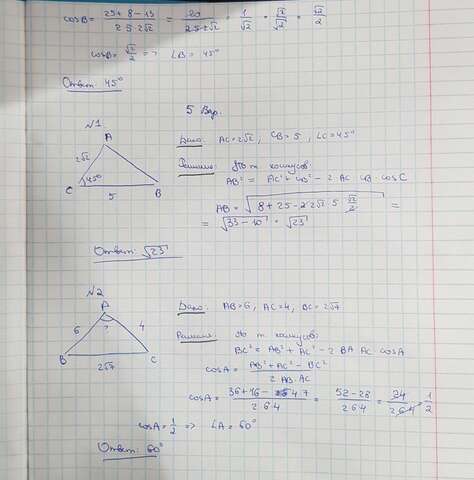 cosB = (25+8-13)/(2·5·2√2) = 20/(2·5·2√2) = 1/√2 · √2/√2 = √2/2
cosB = √2/2 => ∠B = 45°
Ответ: 45°
5 Вар.
№1
Дано: AC=2√2, CB=5, ∠C=45°
A
2√2
45°
C
5
B
Решение: По т косинусов:
AB² = AC² + CB² - 2 AC CB cosC
AB = √(8+25-2 2√2 5 √2/2) =
= √(33-10) = √23
Ответ: √23
№2
Дано: AB=6, AC=4, BC=2√7
A
6
?
4
B
C
2√7
Решение: По т косинусов:
BC² = AB² + AC² - 2 BA AC cosA
cosA = (AB² + AC² - BC²)/(2 AB·AC)
cosA = (36+16-4·7)/(2 6 4) = (52-28)/(2 6 4) = 24/(2 6 4) = 1/2
cosA = 1/2 => ∠A = 60°
Ответ: 60°